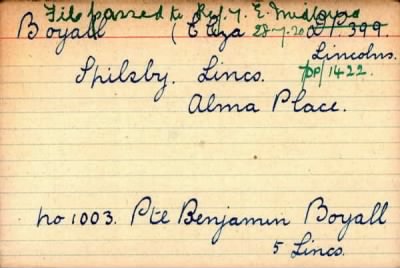 File passed to Ref. Y. E. Midlands
Boyall (E Eliza 28-7-20 DP. 399.
Lincolns.
DP/1422.
Spilsby. Lincs.
Alma Place.
No 1003. Pte Benjamin Boyall
5 Lincs.